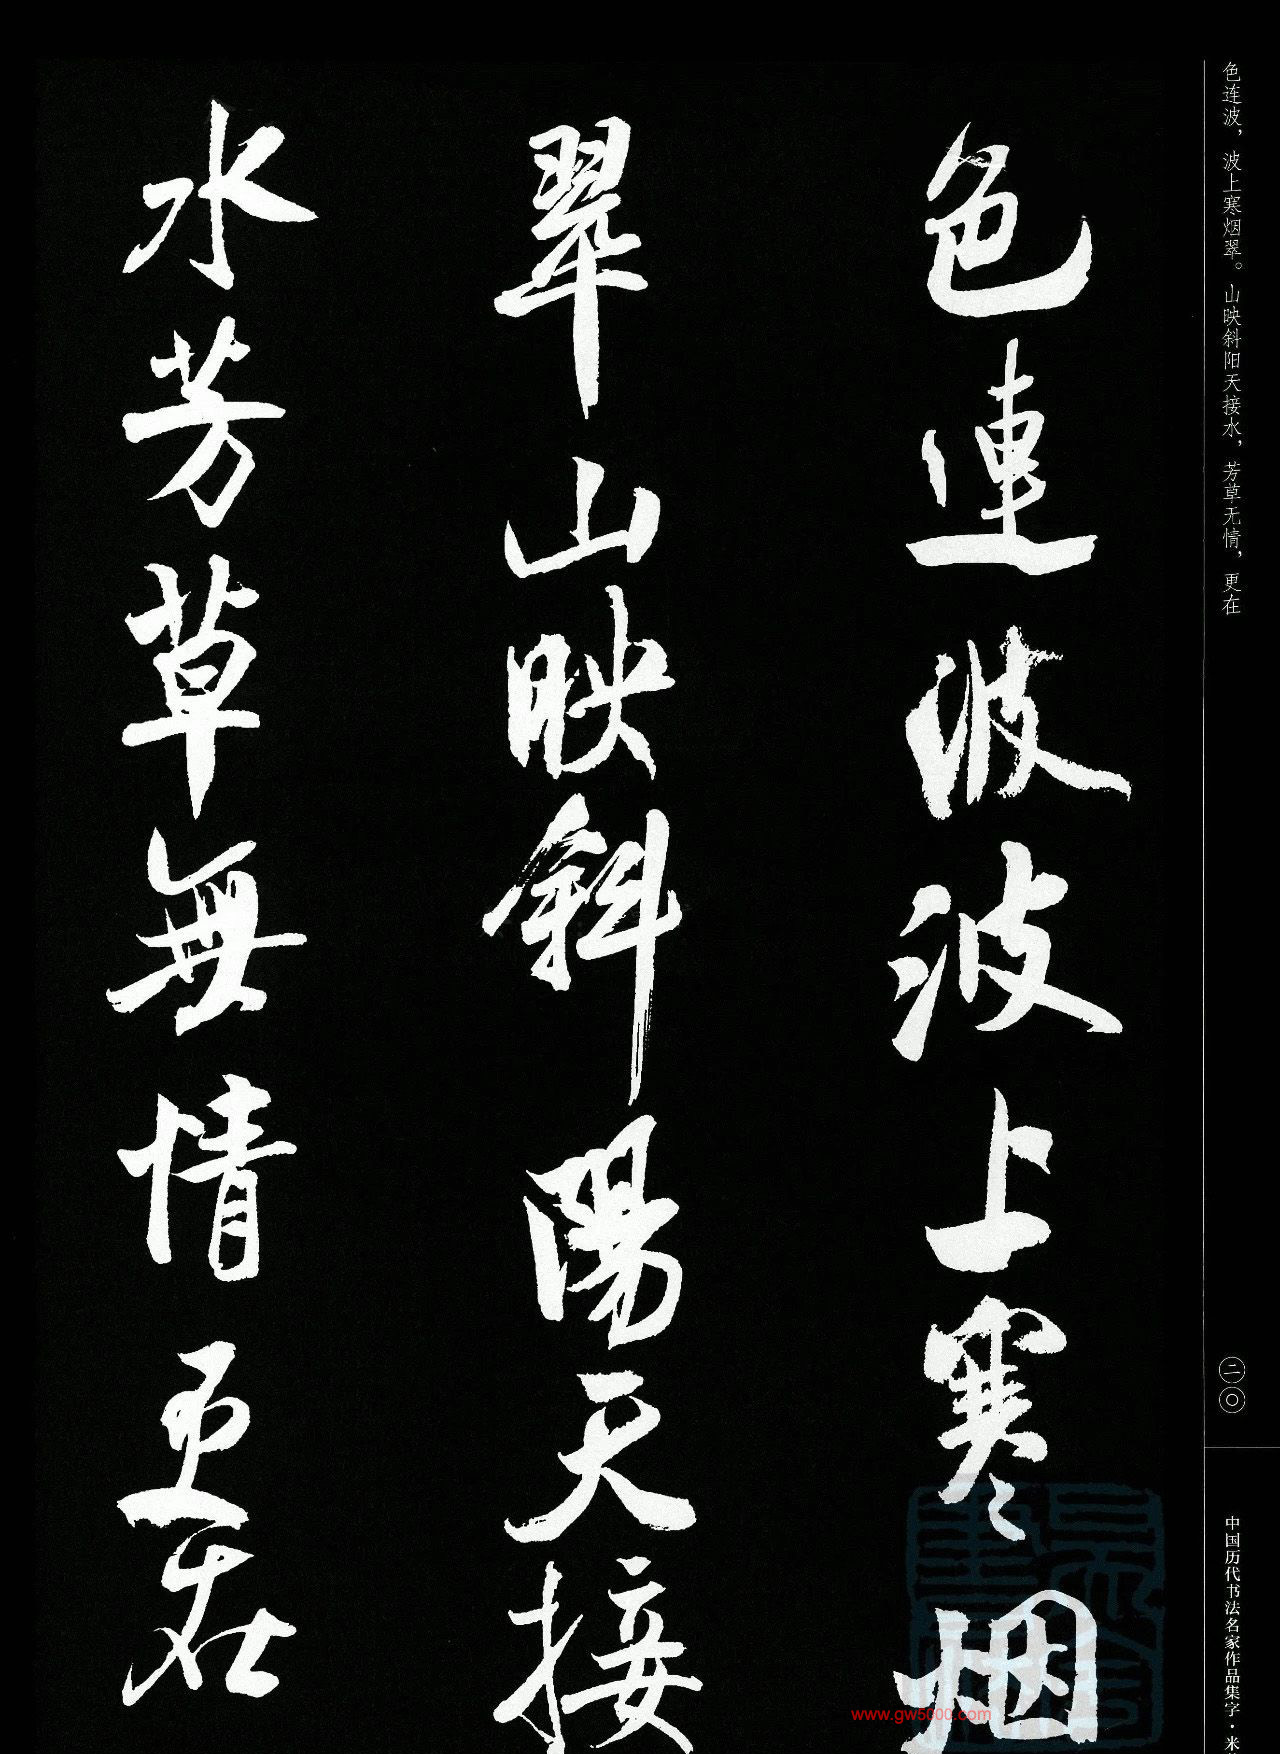 色連波波上寒烟
翠山映斜陽天接
水芳草無情更在
色连波，波上寒烟翠。山映斜阳天接水，芳草无情，更在
二〇
中国历代书法名家作品集字·米
www.gw5000.com